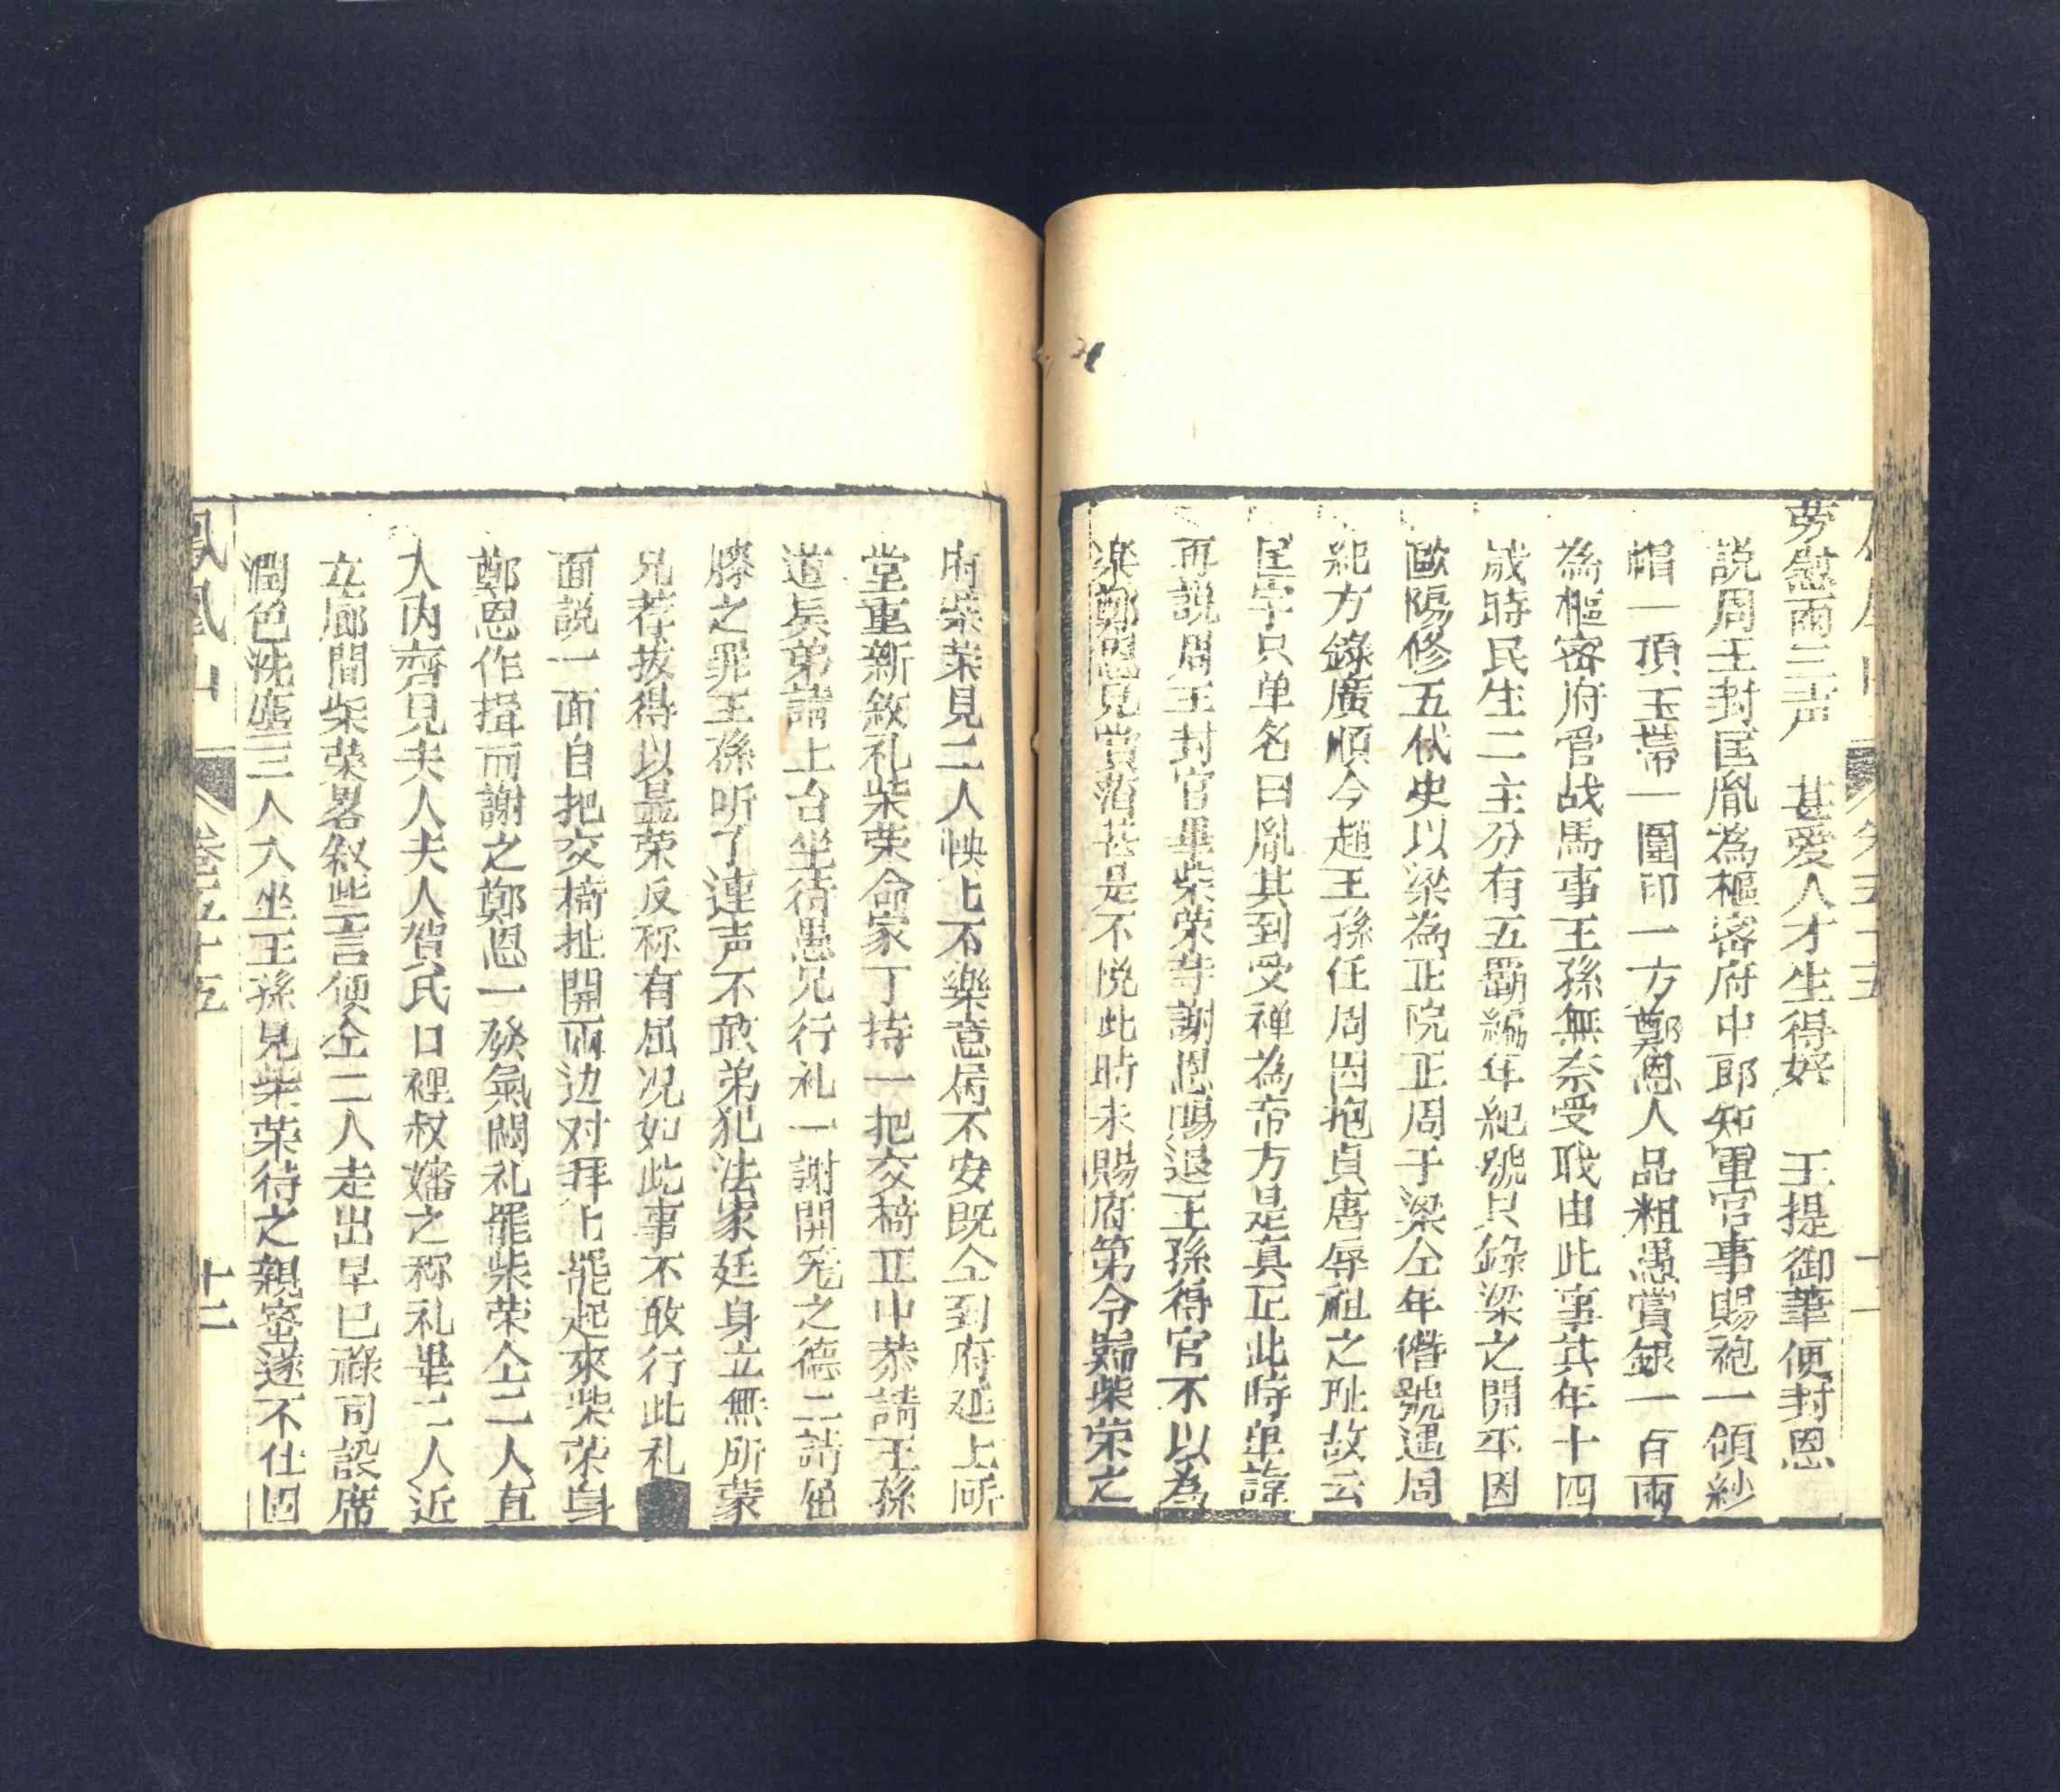 劳慰兩三声　甚愛人才生得好　王提御筆便封恩
説周王封匡胤為樞密府中郎知軍官事賜袍一領紗
帽一頂玉帶一圍印一方鄭恩人品粗愚賞銀一百兩
為樞密府管战馬事王孫無奈受职由此事其年十四
歲時民生二主分有五覇編年紀號只錄梁之開平因
歐陽修五代史以梁為正院正周于梁仝年僭號遇周
紀方錄廣順今趙王孫任周因抱貞唐辱祖之耻故云
匡字只单名曰胤其到受禅為帝方是真正此時单諱
再説周王封官畢柴荣等謝恩賜退王孫得官不以為
楽鄭恩見賞薄甚是不悦此時未賜府第令歸柴荣之
府柴荣見二人怏上不樂意局不安既仝到府延上所
堂重新敘礼柴荣命家丁持一把交椅正中恭請王孫
道矣弟請上台坐待愚兄行礼一謝開冤之德二請
縢之罪王孫听了連声不敢弟犯法家廷身立無所蒙
兄荐拔得以显荣反称有屈况如此事不敢行此礼
面説一面自把交椅扯開兩边对拜上罷起來柴荣身
鄭恩作揖而謝之鄭恩一發氣悶礼罷柴荣仝二人直
入内齊見夫人夫人賀氏口裡叔嬸之称礼畢二人近
立廊間柴荣畧叙些言便仝二人走出早已祿司設席
潤色洗塵三人入坐王孫見柴荣待之親密遂不仕因
鳳凰山　卷五十五　十二